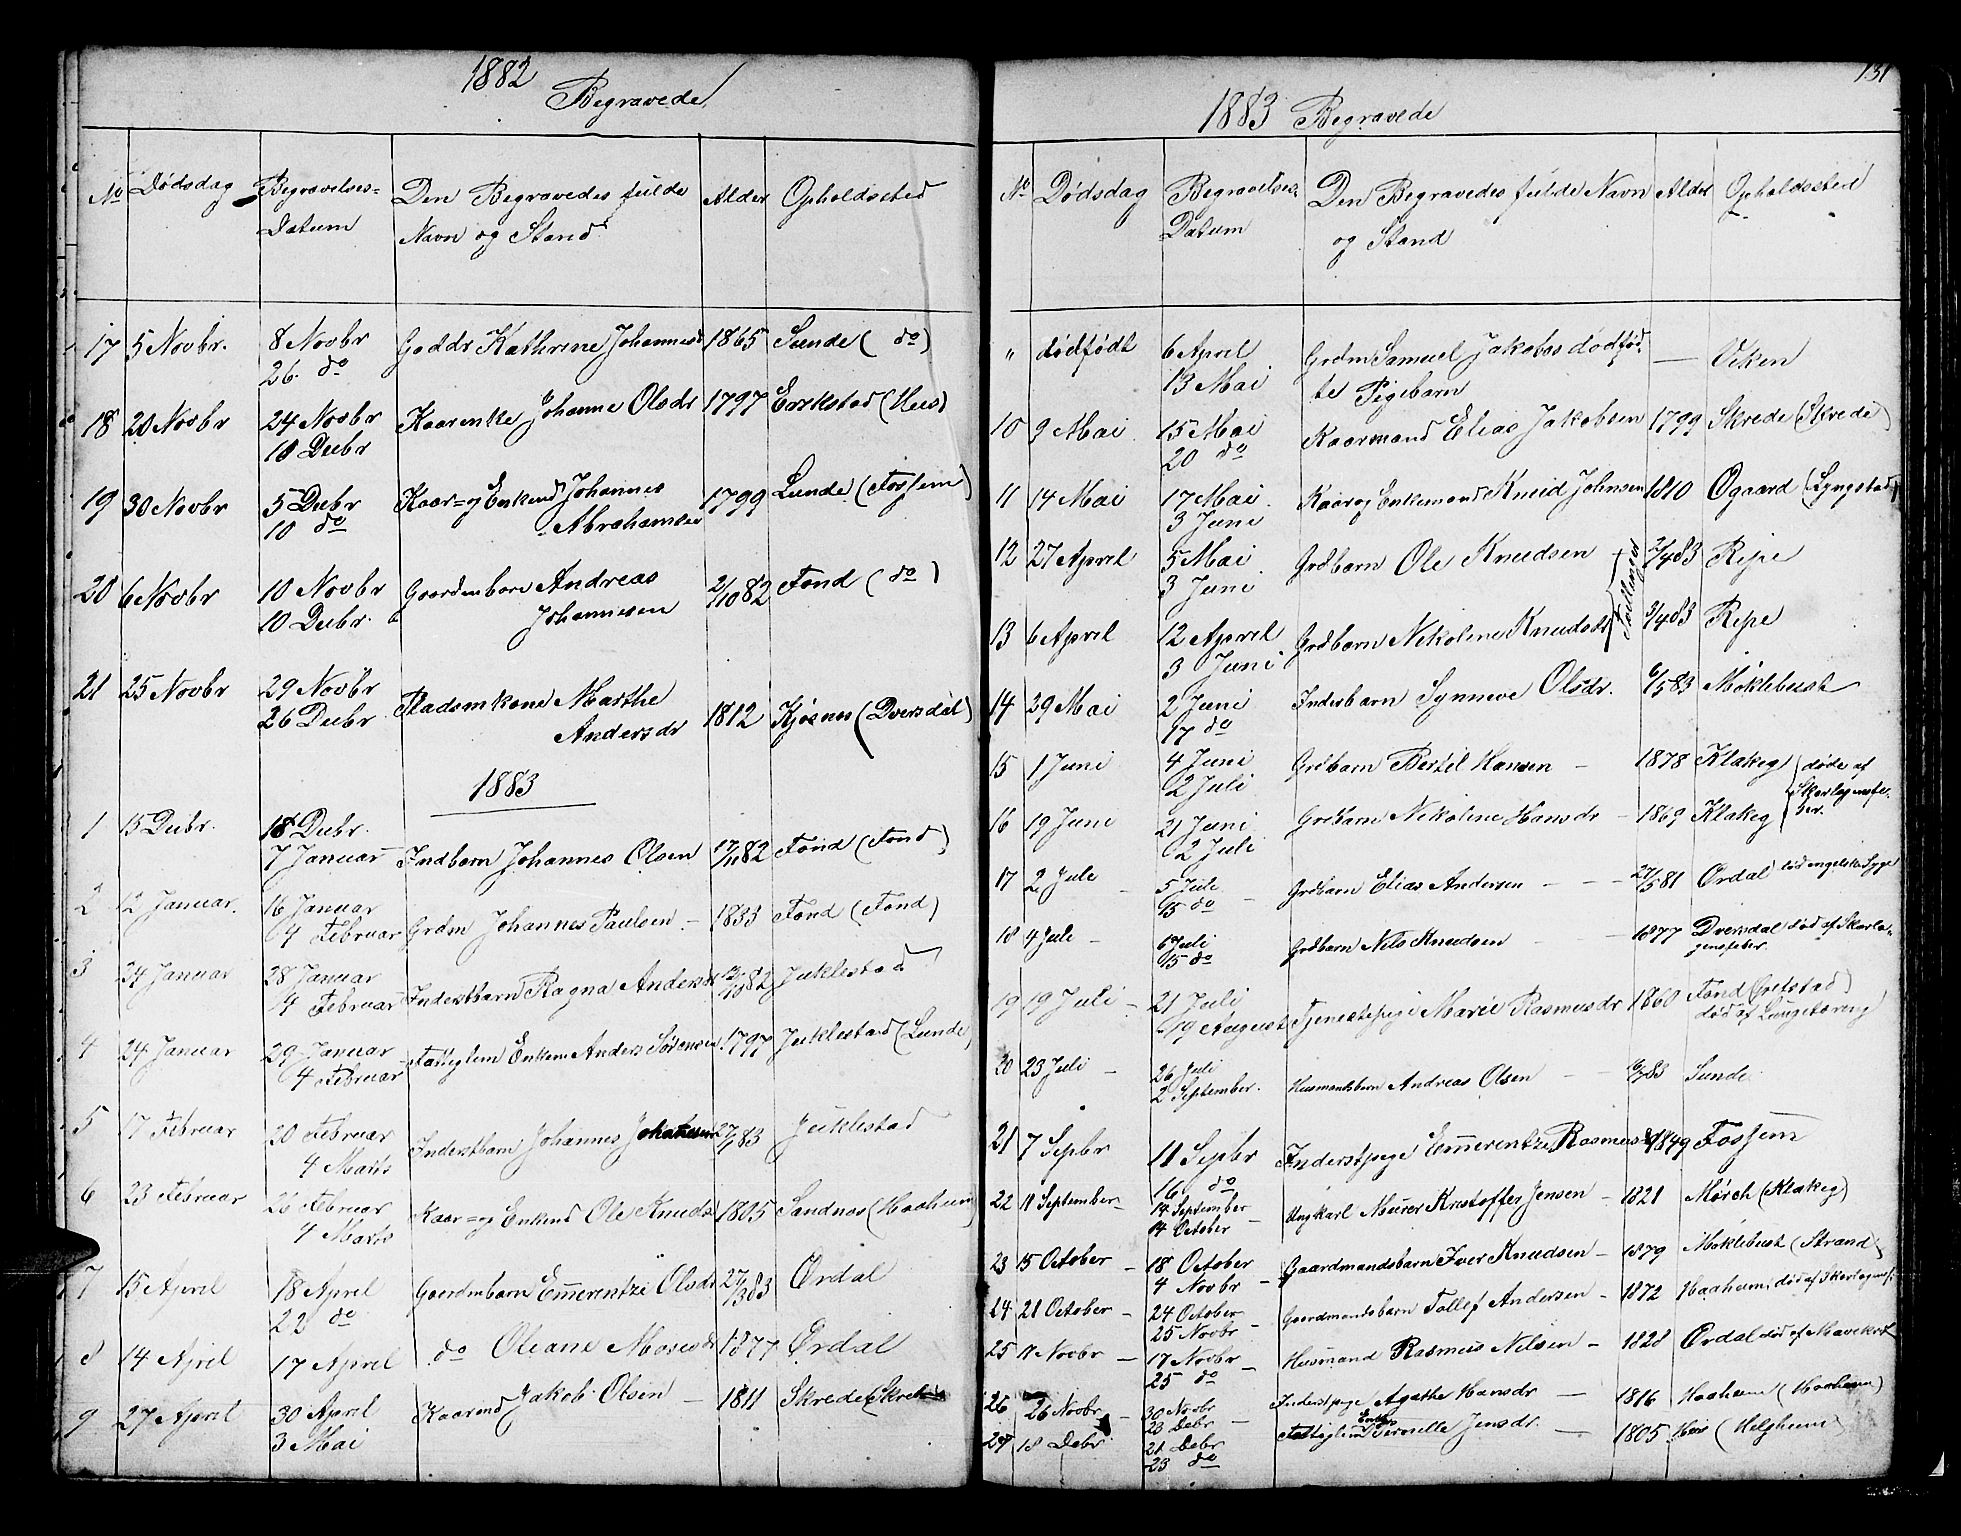 1882
Begravede
No Dødsdag Begravelses= Datum Den Begravedes fulde Navn og Stand Alder Opholdssted
17 5 Novbr. 8 Novbr Gaddr Kathrine Johannesd 1865 Sunde ( do )
26. do
18 20 Novbr 24 Novbr Kaarenke Johanne Olsdr 1797 Erikstad (Hus)
10 Decbr
19 30 Novbr 5 Decbr Kaar= og Enkemd Johannes 1799 Lunde (Fossem)
10 do Abrahamsen
20 6 Novbr 10 Novbr Gaardmbarn Andreas 2/10 82 Fond ( do )
10 Decbr. Johannesen
21 25 Novbr 29 Novbr Pladsmkone Marthe 1812 Kjøsnes (Dversdal)
26 Decbr. Andersdr
1883
1 15 Decbr. 18 Decbr.
7 Januar Indbarn Johannes Olsen 17/11 82 Fond (Fond)
2 12 Januar. 16 Januar
4 Februar Grdm Johannes Paulsen - 1833 Fond (Fond)
3 24 Januar 28 Januar
4 Februar Inderstbarn Ragna Andersdr 12/10 82 Juklestad
4 24 Januar 29 Januar
4 Februar Fattiglem Enkem Anders Sørensen 1797 Juklestad (Lunde)
5 17 Februar 20 Februar
4 Marts Inderstbarn Johannes Johannesen 27/1 83 Juklestad
6 23 Februar 26 Februar
4 Marts Kaar= og Enkemd Ole Knuds. 1805 Sandnes (Haaheim)
7 15 April 18 April Gaardmbarn Emerentze Olsdr 27/3 83 Ørdal
22 do
8 14 April 17 April do Oliane Mosesdr 1877 Ørdal
9 27 April 30 April Kaarmd Jakob Olsen - 1811 Skrede (Skrede)
3 Mai
131
1883 Begravede
No Dødsdag Begravelses. Datum Den Begravedes fulde Navn og Stand Alder Opholdssted
" dødfødt 6 April Grdm Samuel Jakobs dødfød. — Viken
13 Mai te Pigebarn
10 9 Mai 15 Mai Kaarmand Elias Jakobsen 1799 Skrede (Skrede)
20 do
11 14 Mai 17 Mai Kaar og Enkemand Knud Johnsen 1810 Øgaard (Lyngstad)
3 Juni
12 27 April 5 Mai Grdbarn Ole Knudsen 2/4 83 Ripe
3 Juni Tvillinger
13 6 April 12 April Grdbarn Nikoline Knudsdr 3/4 83 Ripe
3 Juni
14 29 Mai 2 Juni Inderbarn Synneve Olsdr. 6/5 83 Møklebust
17 do
15 1 Juni 4 Juni Grdbarn Bertil Hansen - 1878 Klakeg døde af
2 Juli Skarlagensfe-
16 19 Juni 21 Juni Grdbarn Nikoline Hansdr - 1869 Klakeg ber.
2 Juli
17 2 Juli - 5 Juli Grdbarn Elias Andersen - - - 27/5 81 Ørdal død engelsk Syge
15 do
18 4 Juli - 6 Juli Grdbarn Nils Knudsen - - 1877 Dversdal død af Skarla-
15 do gensfeber.
19 19 Juli - 21 Juli Tjenestepige Marie Rasmusdr 1860 Fond (Grefstad)
19 August død af Lungetæring
20 23 Juli - 26 Juli Husmandsbarn Andreas Olsen - - 16/7 83 Sunde
2 September.
21 7 Sepbr 11 Sepbr Inderstpige Emerentze Rasmusdr 1849 Fossem
16 do
22 11 September - 14 September Ungkarl Murer Kristoffer Jensen - 1821 Mørch (Klakeg)
14 October
23 15 October - 18 October Gaardmandsbarn Iver Knudsen - 1879 Møklebust (Strand)
4 Novbr -
24 21 October - 24 October Gaardmandsbarn Tollef Andersen - 1872 Haaheim, død af Skarlagensf:
25 Novbr -
25 11 Novbr - 17 Novbr Husmand Rasmus Nilsen - 1828 Ørdal død af Mavekræft
25 do -
26 26 Novbr - 30 Novbr Inderstpige Agathe Hansdr — 1816 Haaheim (Haaheim)
23 Debr - Enke
27 18 Debr 21 Debr Fattiglem Pernille Jensdr. — 1805 Hus (Helgheim)
23 do